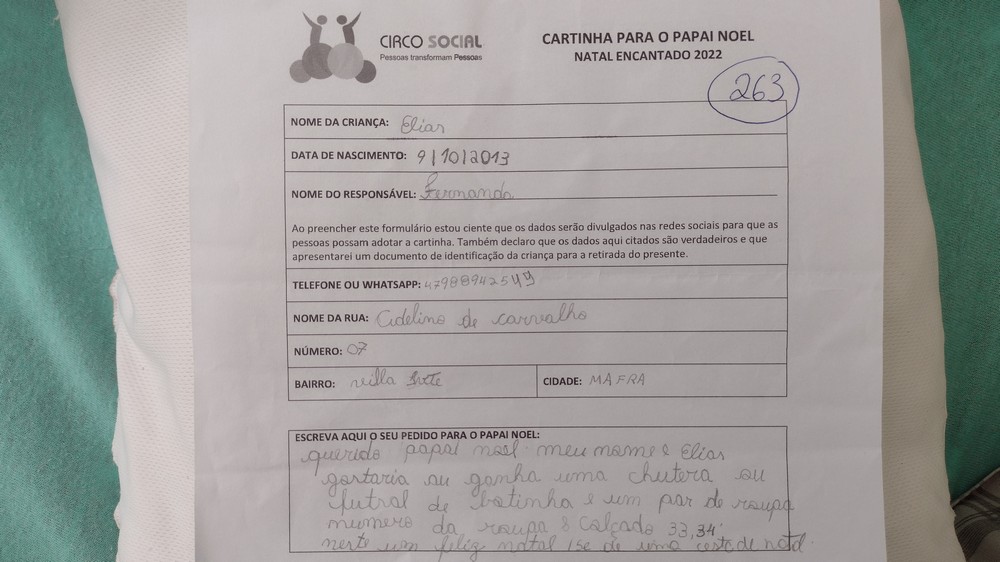 CIRCO SOCIAL
Pessoas transformam Pessoas
CARTINHA PARA O PAPAI NOEL
NATAL ENCANTADO 2022
263
NOME DA CRIANÇA: Elias
DATA DE NASCIMENTO: 9/10/2013
NOME DO RESPONSÁVEL: Fernanda
Ao preencher este formulário estou ciente que os dados serão divulgados nas redes sociais para que as
pessoas possam adotar a cartinha. Também declaro que os dados aqui citados são verdadeiros e que
apresentarei um documento de identificação da criança para a retirada do presente.
TELEFONE OU WHATSAPP: 47988942549
NOME DA RUA: Cidelino de carvalho
NÚMERO: 07
BAIRRO: villa
CIDADE: MAFRA
ESCREVA AQUI O SEU PEDIDO PARA O PAPAI NOEL:
querido papai noel meu nome e Elias
gostaria ou ganha uma chutera ou
futsal de botinha e um par de roupa
numero da roupa 8 calçado 33,34
um feliz natal de uma cesta de natal